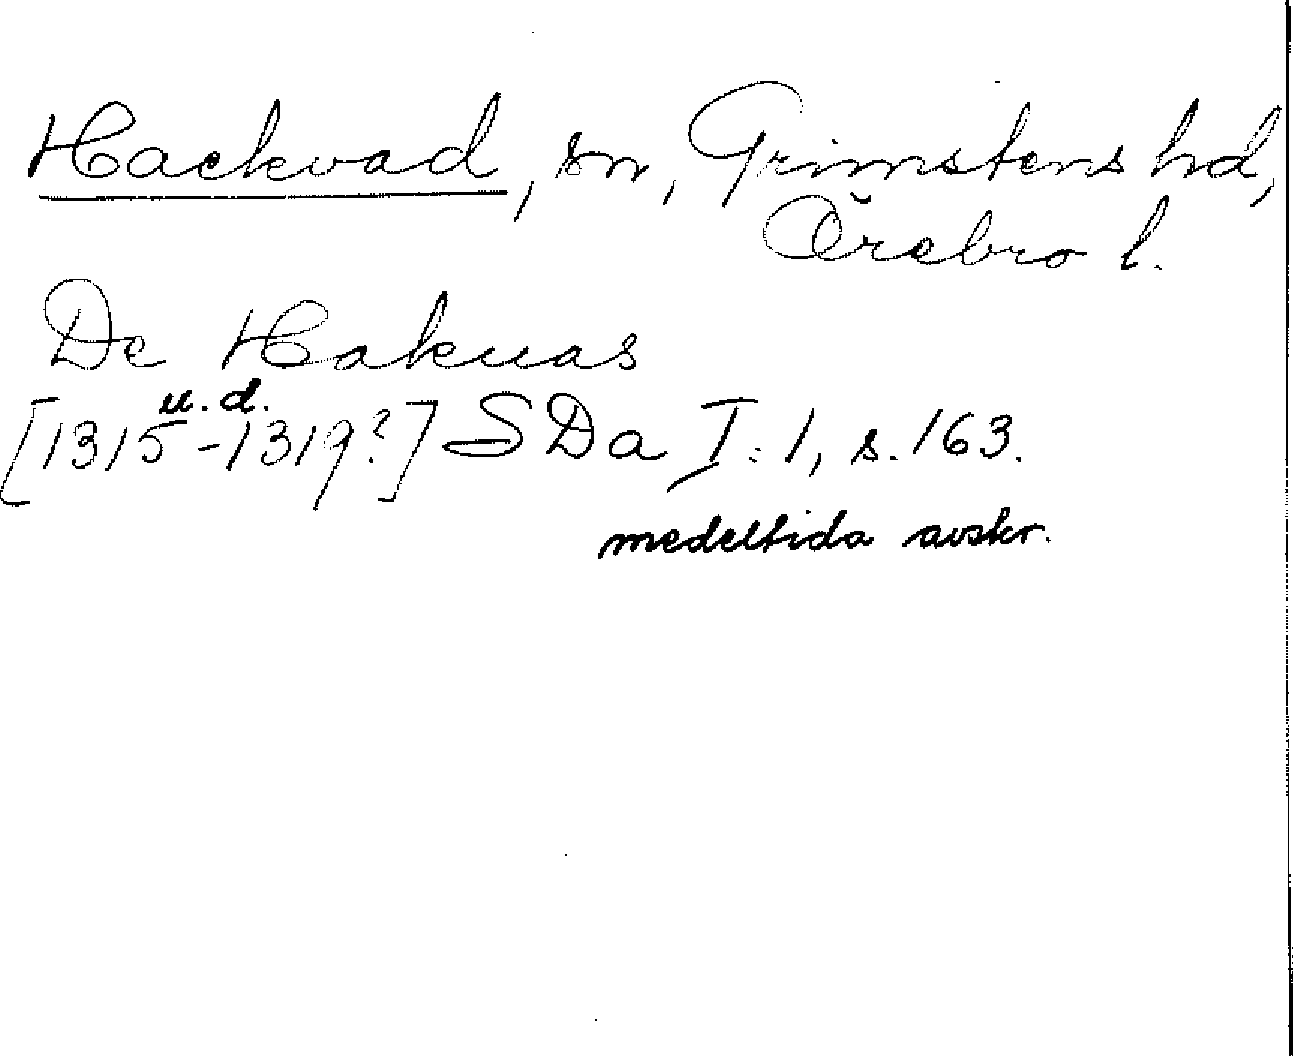 Hackvad, sn, Grimstens hd,
Örebro l.
De Hakuas
u.d.
[1315-1319?] SDa I:1, s. 163.
medeltida avskr.